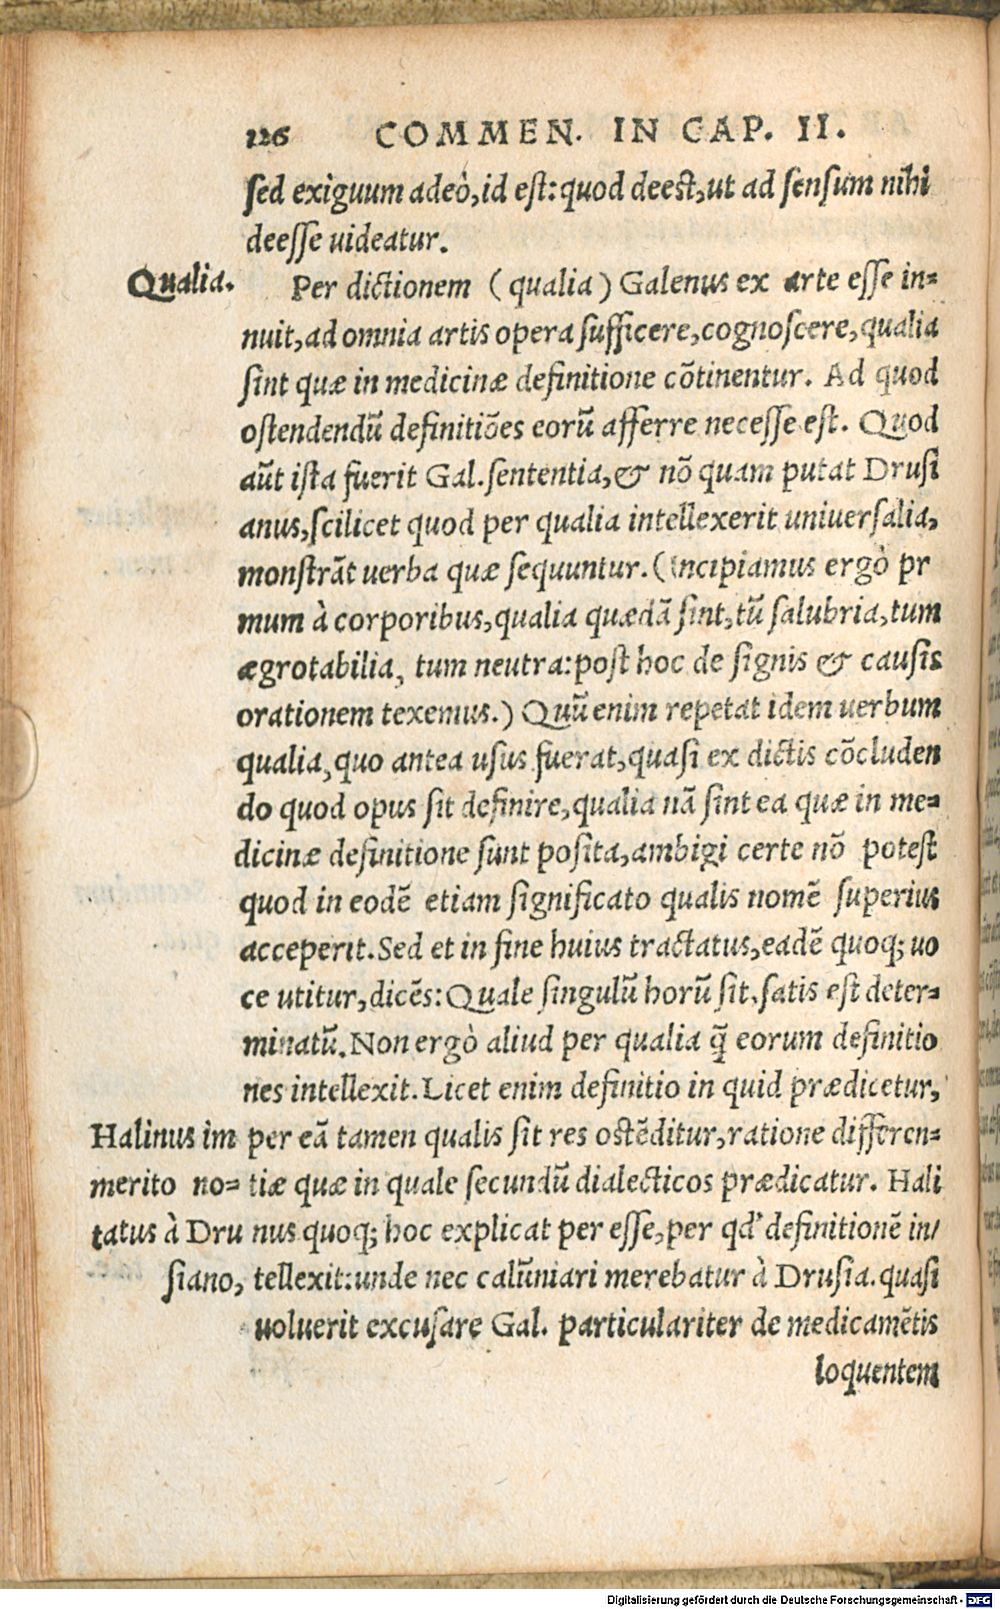 126 COMMEN. IN CAP. II.
sed exiguum adeò, id est: quod deest, ut ad sensum nihi
deesse uideatur.
Qualia.
Per dictionem (qualia) Galenus ex arte esse in=
nuit, ad omnia artis opera sufficere, cognoscere, qualia
sint quæ in medicinæ definitione cõtinentur. Ad quod
ostendendũ definitiões eorũ afferre necesse est. Quod
aũt ista fuerit Gal. sententia, & nõ quam putat Drusi
anus, scilicet quod per qualia intellexerit uniuersalia,
monstrãt uerba quæ sequuntur. (Incipiamus ergò pr
mum à corporibus, qualia quædã sint, tũ salubria, tum
ægrotabilia, tum neutra: post hoc de signis & causis
orationem texemus.) Quũ enim repetat idem uerbum
qualia, quo antea usus fuerat, quasi ex dictis cõcluden
do quod opus sit definire, qualia nã sint ea quæ in me=
dicinæ definitione sunt posita, ambigi certe nõ potest
quod in eodẽ etiam significato qualis nomẽ superius
acceperit. Sed et in fine huius tractatus, eadẽ quoq; uo
ce utitur, dicẽs: Quale singulũ horũ sit, satis est deter=
minatũ. Non ergò aliud per qualia q̃ eorum definitio
nes intellexit. Licet enim definitio in quid prædicetur,
per eã tamen qualis sit res ostẽditur, ratione differen=
tiæ quæ in quale secundũ dialecticos prædicatur. Hali
nus quoq; hoc explicat per esse, per qd' definitionẽ in/
tellexit: unde nec calũniari merebatur à Drusia. quasi
uoluerit excusare Gal. particulariter de medicamẽtis
loquentem
Halinus im
merito no=
tatus à Dru
siano,
Digitalisierung gefördert durch die Deutsche Forschungsgemeinschaft - DFG